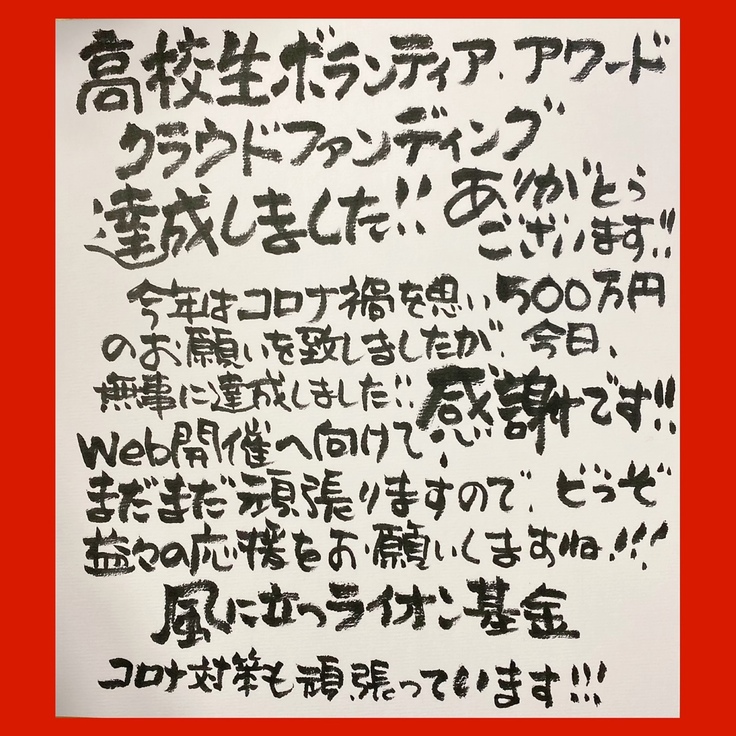 高校生ボランティア.アワード
クラウドファンディング
達成しました!! ありがとう
ございます!!
今年はコロナ禍を思い500万円
のお願いを致しましたが、今日、
無事に達成しました!! 感謝です!!
Web開催へ向けて、
まだまだ頑張りますので、どうぞ
益々の応援をお願いしますね!!!
風に立つライオン基金
コロナ対策も頑張っています!!!